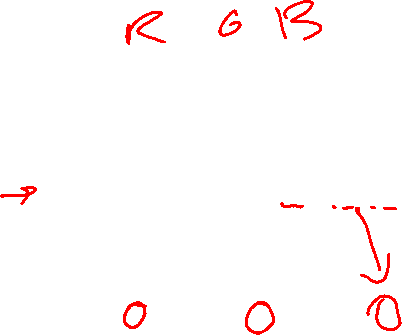 R G B
0 0 0